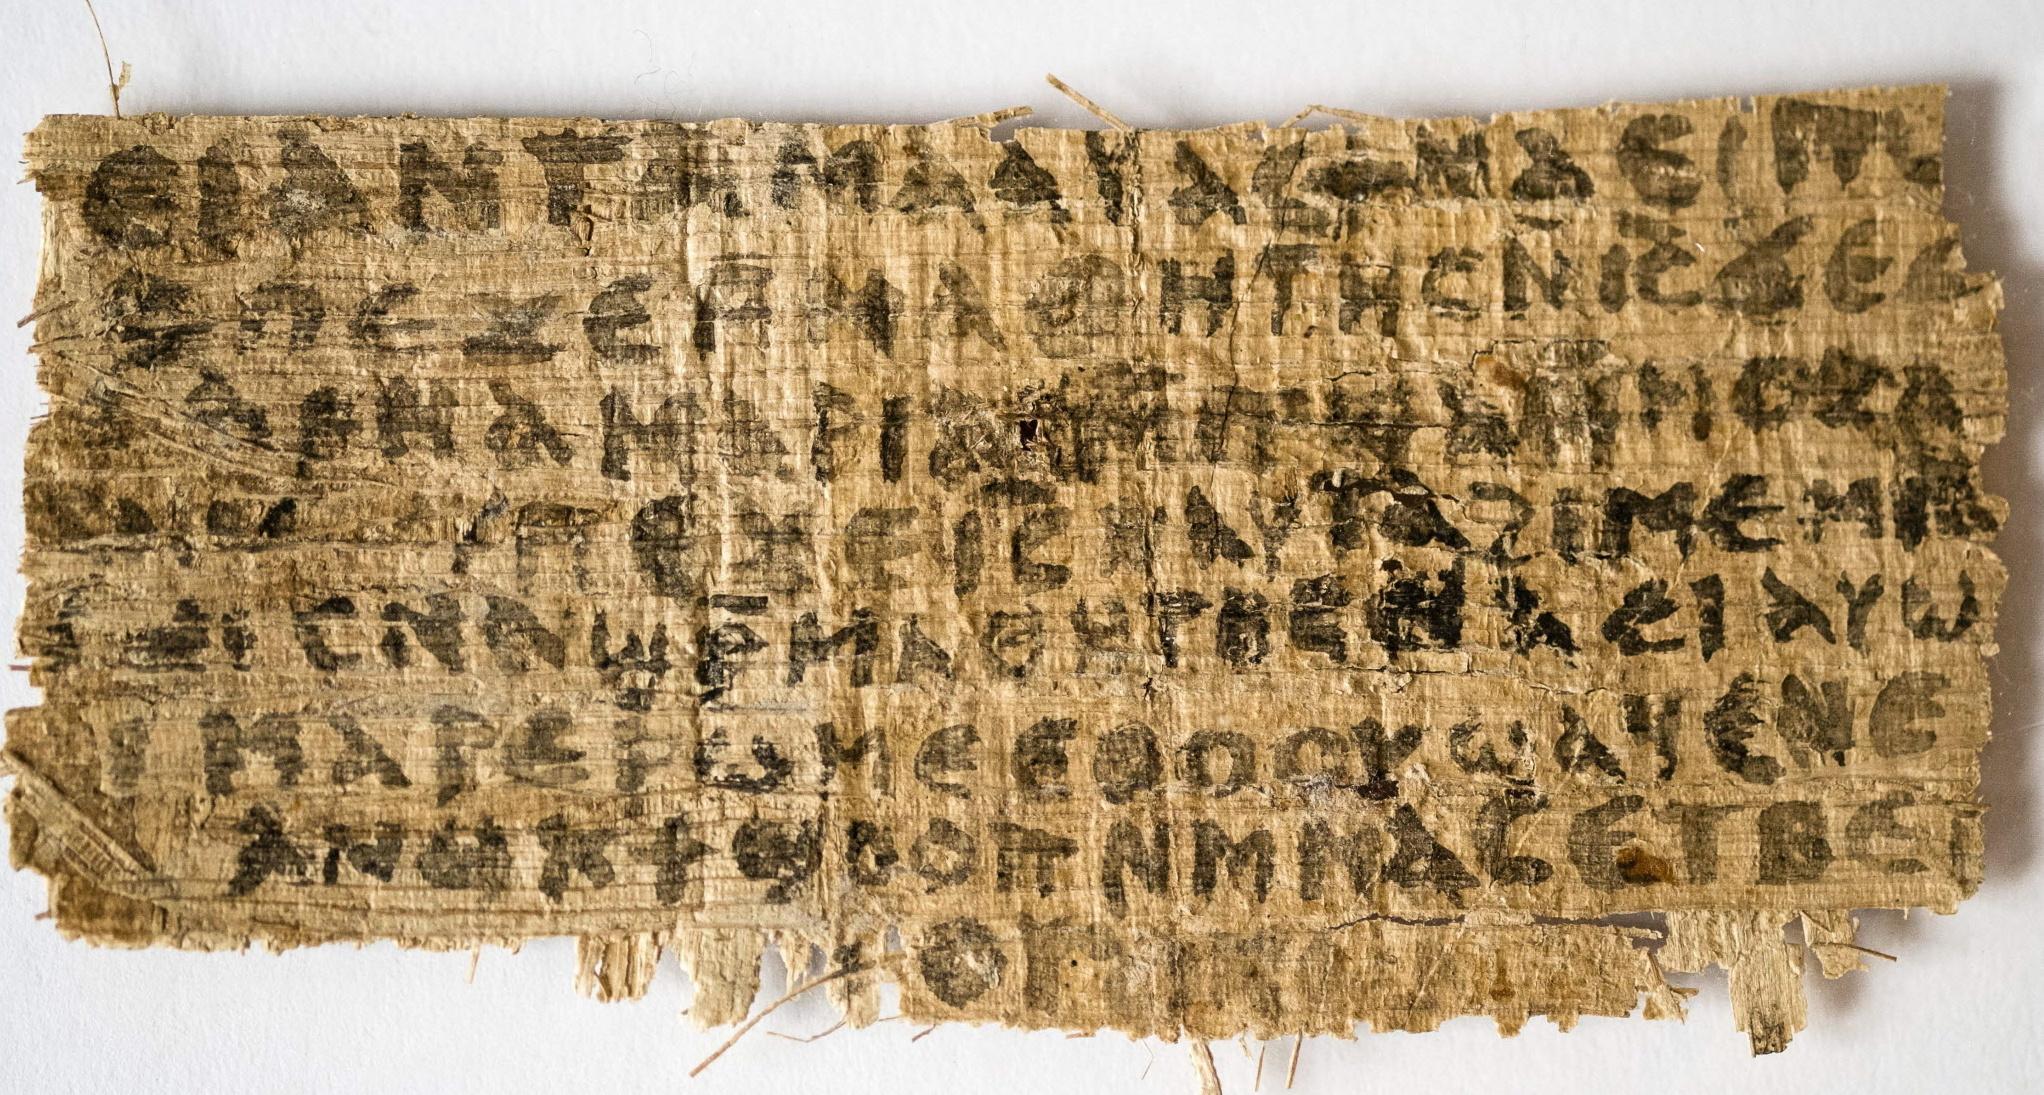 ⲉⲓ ⲁⲛ ⲧⲁⲙⲁⲁⲩ ⲁⲥϯ ⲛⲁⲉⲓ ⲡⲱ
ⲡⲉϫⲉ ⲙ̄ⲙⲁⲑⲏⲧⲏⲥ ⲛ̄ⲓ̄ⲥ̄ ϫⲉ ⲥ
ⲁⲣⲛⲁ ⲙⲁⲣⲓⲁⲙ ⲙ̄ⲡϣⲁ ⲙ̄ⲙⲟⲥ ⲁ
ⲡⲉϫⲉ ⲓ̄ⲥ̄ ⲛⲁⲩ ⲧⲁϩⲓⲙⲉ ⲙⲛ̄
ⲥⲛⲁϣⲣ̄ⲙⲁⲑⲏⲧⲏⲥ ⲛⲁⲉⲓ ⲁⲩⲱ
ⲓ ⲙⲁⲣⲉⲣⲱⲙⲉ ⲉⲑⲟⲟⲩ ϣⲁϥⲉ ⲛⲉ
ⲁⲛⲟⲕ ϯϣⲟⲟⲡ ⲛⲙ̄ⲙⲁⲥ ⲉⲧⲃⲉ ⲡ